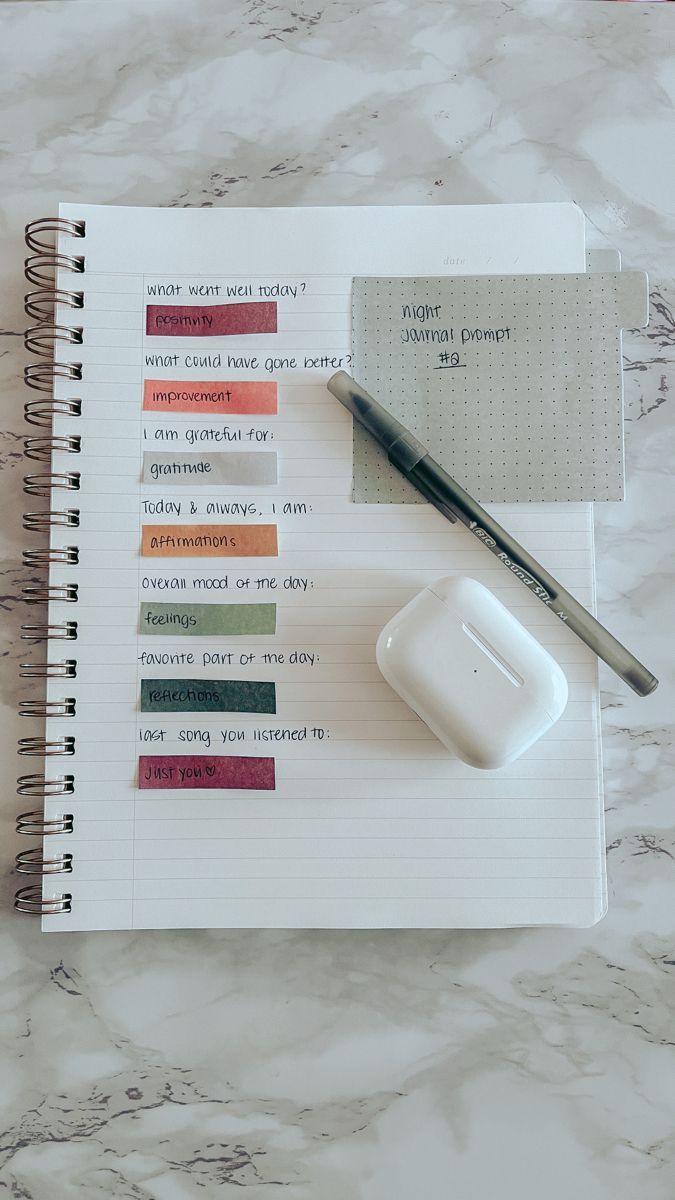 date / /
what went well today?
positivity
what could have gone better?
improvement
I am grateful for:
gratitude
Today & always, I am:
affirmations
overall mood of the day:
feelings
favorite part of the day:
reflections
last song you listened to:
Just you ♡
night
Journal prompt
#2
BIC Round Stic M